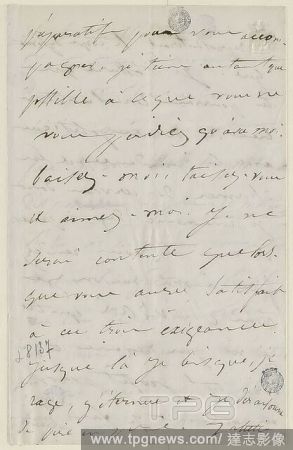 pour vous accom
pagner, je tiens autant que
possible à ce que vous ne
vous qu'à moi.
baisez-moi, taisez-vous
& aimez-moi. Je ne
serai contente que lors
que vous aurez satisfait
à ces trois exigeances.
jusque là je bisque, je
rage, j'éternue et je
de
28137
TPG
www.tpgnews.com/達志影像